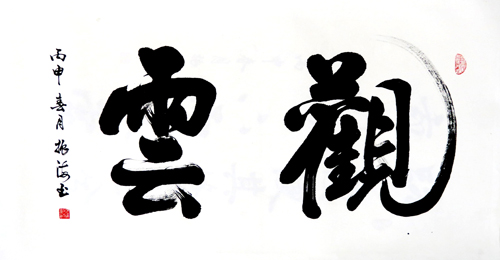 觀雲
丙申春月振海书